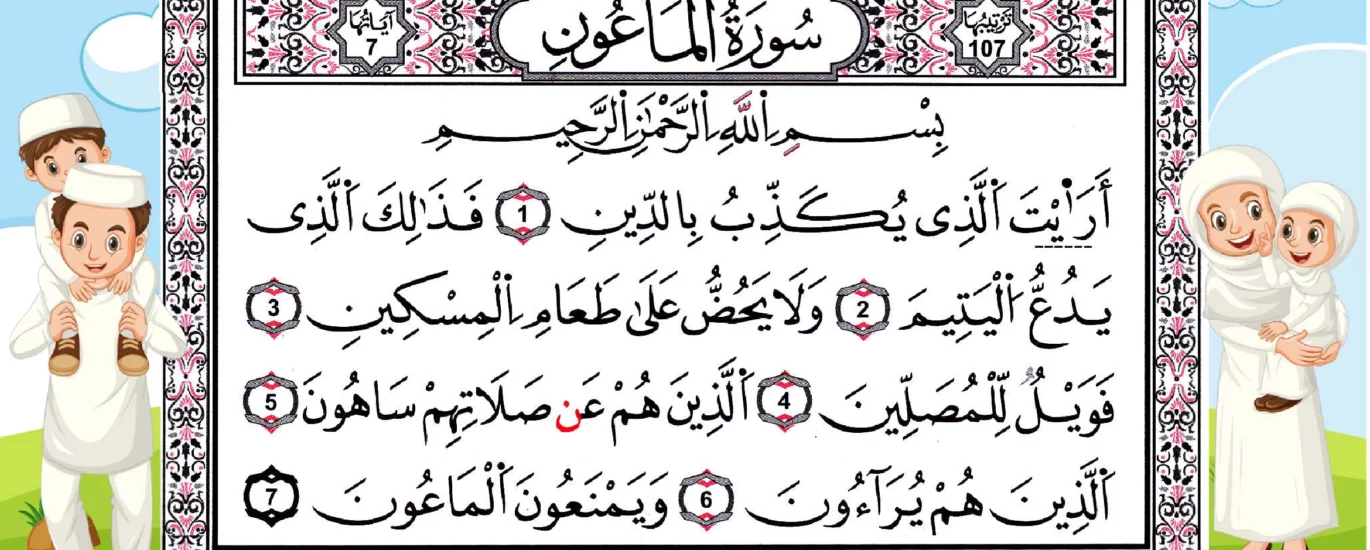 ترتيبها 107
سُورَةُ الْمَاعُونِ
آياتها 7
بِسْمِ اِ۬للَّهِ اِ۬لرَّحْمَٰنِ اِ۬لرَّحِيمِ
أَرَٰٓيْتَ اَ۬لَّذِى يُكَذِّبُ بِالدِّينِ 1 فَذَٰلِكَ اَ۬لَّذِى
يَدُعُّ اُ۬لْيَتِيمَ 2 وَلَا يَحُضُّ عَلَىٰ طَعَامِ اِ۬لْمِسْكِينِ 3
فَوَيْلٌ لِّلْمُصَلِّينَ 4 اَ۬لَّذِينَ هُمْ عَن صَلَاتِهِمْ سَاهُونَ 5
اَ۬لَّذِينَ هُمْ يُرَآءُونَ 6 وَيَمْنَعُونَ اَ۬لْمَاعُونَ 7